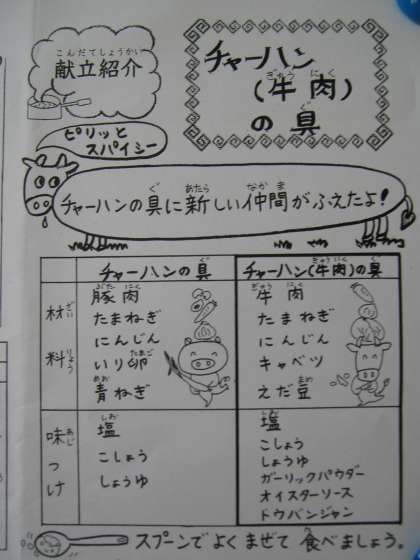 こんだてしょうかい
献立紹介
チャーハン
(牛肉)
ぎゅう にく
の具
ぐ
ピリッと
スパイシー
チャーハンの具に新しい仲間がふえたよ!
ぐ あたら なかま
チャーハンの具
ぐ
チャーハン(牛肉)の具
ぎゅう にく ぐ
材料
ざい りょう
豚肉
ぶた にく
たまねぎ
にんじん
いり卵
たまご
青ねぎ
あお
牛肉
ぎゅう にく
たまねぎ
にんじん
キャベツ
えだ豆
まめ
味つけ
あじ
塩
しお
こしょう
しょうゆ
塩
しお
こしょう
しょうゆ
ガーリックパウダー
オイスターソース
トウバンジャン
スプーンでよくまぜて食べましょう。
た